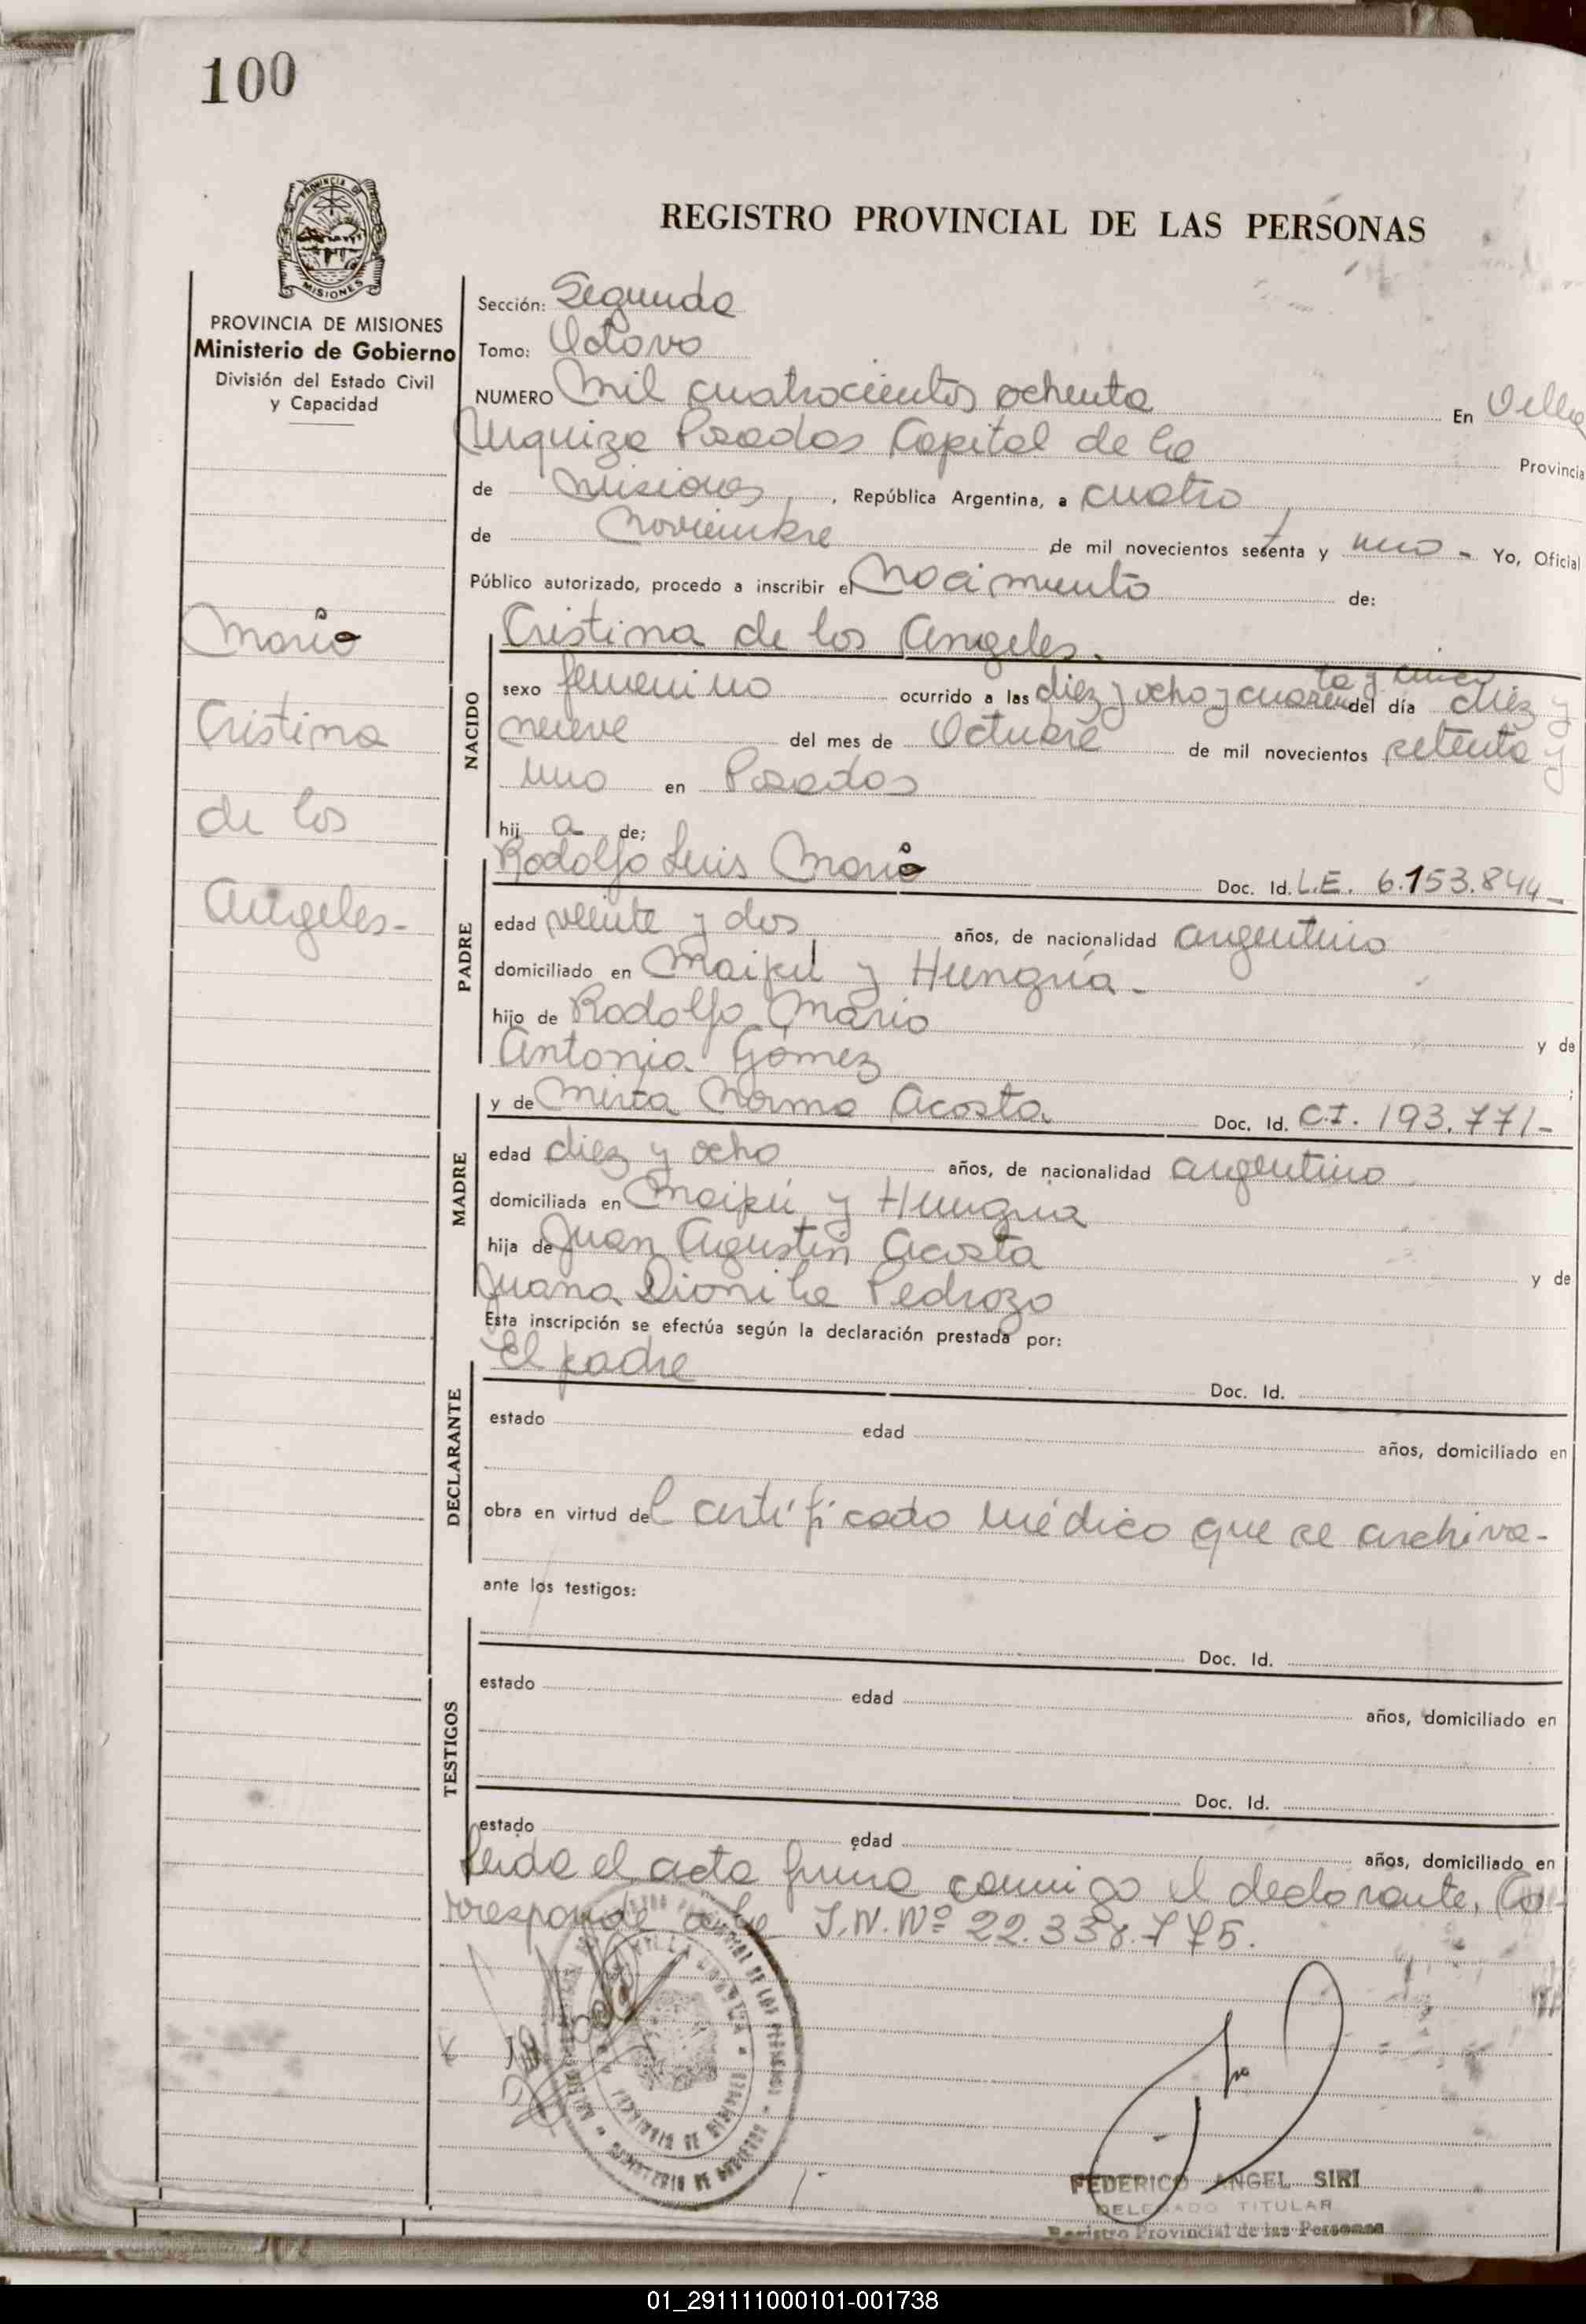 100
PROVINCIA DE
MISIONES
REGISTRO PROVINCIAL DE LAS PERSONAS
PROVINCIA DE MISIONES
Ministerio de Gobierno
División del Estado Civil
y Capacidad
Mario
Cristina
de los
Angeles-
Sección: Segunda
Tomo: Octavo
NUMERO Mil cuatrocientos ochenta En Villa
Urquiza Posadas Capital de la Provincia
de Misiones, República Argentina, a cuatro
de Noviembre de mil novecientos setenta y uno - Yo, Oficial
Público autorizado, procedo a inscribir el Nacimiento de:
NACIDO
Cristina de los Angeles.
ta y cinco
sexo femenino ocurrido a las diez y ocho y cuaren del día diez y
nueve del mes de Octubre de mil novecientos setenta y
uno en Posadas
hij a de:
PADRE
Rodolfo Luis Mario Doc. Id. L.E. 6.153.844-
edad veinte y dos años, de nacionalidad argentino
domiciliado en Maipú y Hungría-
hijo de Rodolfo Mario y de
Antonia Gómez
MADRE
y de Mirta Norma Acosta Doc. Id. C.I. 193.771-
edad diez y ocho años, de nacionalidad argentino
domiciliada en Maipú y Hungria
hija de Juan Agustín Acosta y de
Juana Dionila Pedrozo
Esta inscripción se efectúa según la declaración prestada por:
DECLARANTE
El padre Doc. Id.
estado edad años, domiciliado en
obra en virtud del certificado médico que se archiva-
ante los testigos:
TESTIGOS
Doc. Id.
estado edad años, domiciliado en
Doc. Id.
estado edad años, domiciliado en
Leida el acta firma conmigo el declarante. Co-
rresponde a la I.N. Nº 22.338.775.
FEDERICO ANGEL SIRI
DELEGADO TITULAR
Registro Provincial de las Personas
01_291111000101-001738